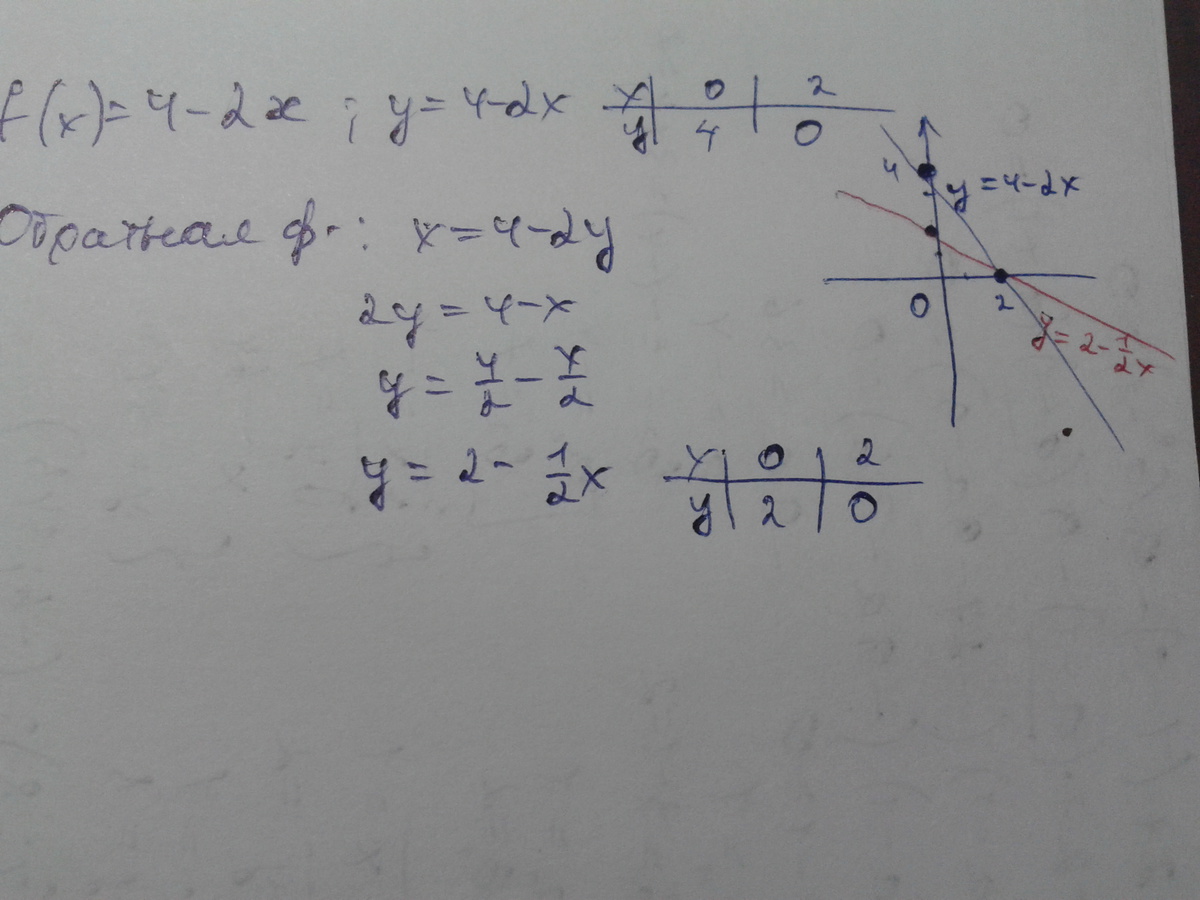 f(x)=4-2x ; y=4-2x
x | 0 | 2
y | 4 | 0
4
y=4-2x
0 2
y=2-1/2x
Обратная ф.: x=4-2y
2y=4-x
y=4/2-x/2
y=2-1/2x
x | 0 | 2
y | 2 | 0